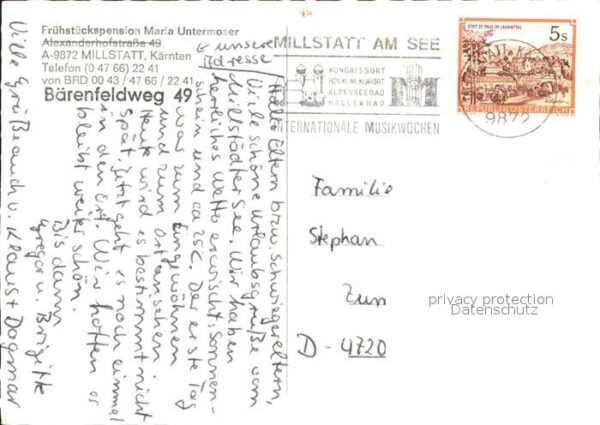 Frühstückspension Maria Untermoser
Alexanderhofstraße 49
A-9872 MILLSTATT, Kärnten
Telefon (0 47 66) 22 41
von BRD 00 43 / 47 66 / 22 41
Bärenfeldweg 49
← unsere
Adresse
Hallo Eltern bzw. Schwiegereltern,
Viele schöne Urlaubsgrüße vom
Millstädter See. Wir haben
herrliches Wetter erwischt: Sonnen-
schein und ca 25C. Der erste Tag
war zum Eingewöhnen
und zum Ort ansehen
Heute wird es bestimmt nicht
spät. Jetzt geht es noch einmal
in den Ort. Wir hoffen es
bleibt weiter schön.
Bis dann
Gregor u. Brigitte
Viele Grüße auch v. Klaus + Dagmar
MILLSTATT AM SEE
KONGRESSORT
HEILKLIM. KURORT
ALPENSEEBAD
HALLENBAD
INTERNATIONALE MUSIKWOCHEN
9872
STIFT ST. PAUL IM LAVANTTAL
5s
REPUBLIK ÖSTERREICH
Familie
Stephan
Zun
D - 4720
privacy protection
Datenschutz